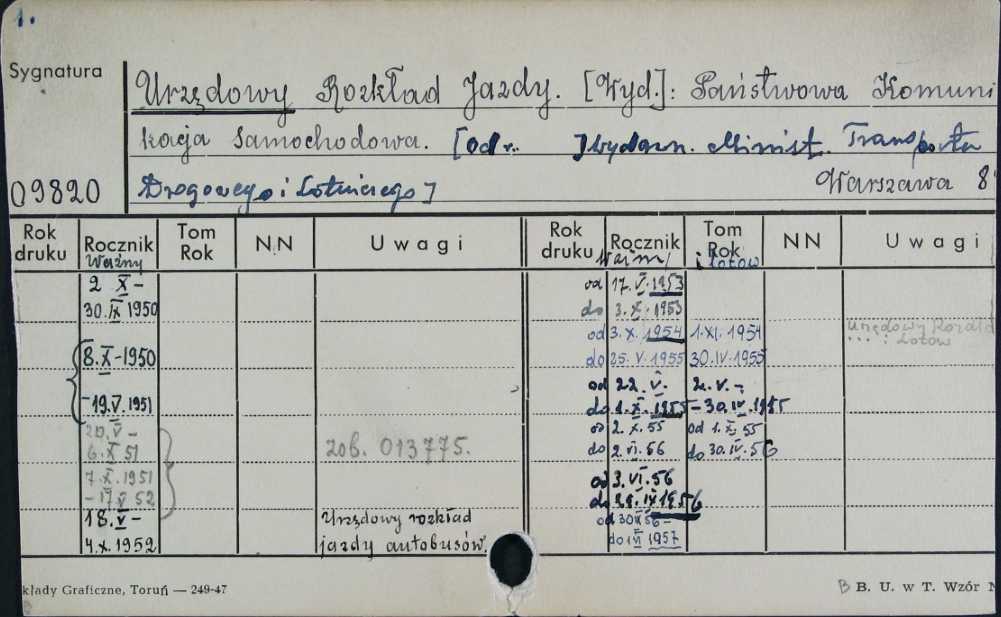 1.
Sygnatura
09820
Urzędowy Rozkład Jazdy. [Wyd.]: Państwowa Komuni
kacja Samochodowa. [od r.. ] wydawn. Minist. Transportu
Drogowego i Lotniczego]
Warszawa 8°
Rok druku Rocznik Tom Rok NN Uwagi Rok druku Rocznik Tom Rok NN Uwagi
Ważny Ważny i Lotów
2 X -
30. IX 1950
8. X - 1950
- 19. V. 1951
20. V -
6. X 51
7. X. 1951
- 17 V 52
zob. 013775.
18. V -
4. X. 1952
Urzędowy rozkład
jazdy autobusów.
od 17. V. 1953
do 3. X. 1953
od 3. X. 1954 1. XI. 1954
do 25. V. 1955 30. IV. 1955
Urzędowy Rozkład
... : Lotów
od 22. V. 2. V. -
do 1. X. 1955 - 30. IV. 1955
od 2. X. 55 od 1. X. 55
do 2. VI. 56 do 30. IV. 56
od 3. VI. 56
do 29. IX 1956
od 30 IX 56 -
do 1 VI 1957
kłady Graficzne, Toruń — 249-47
B B. U. w T. Wzór N